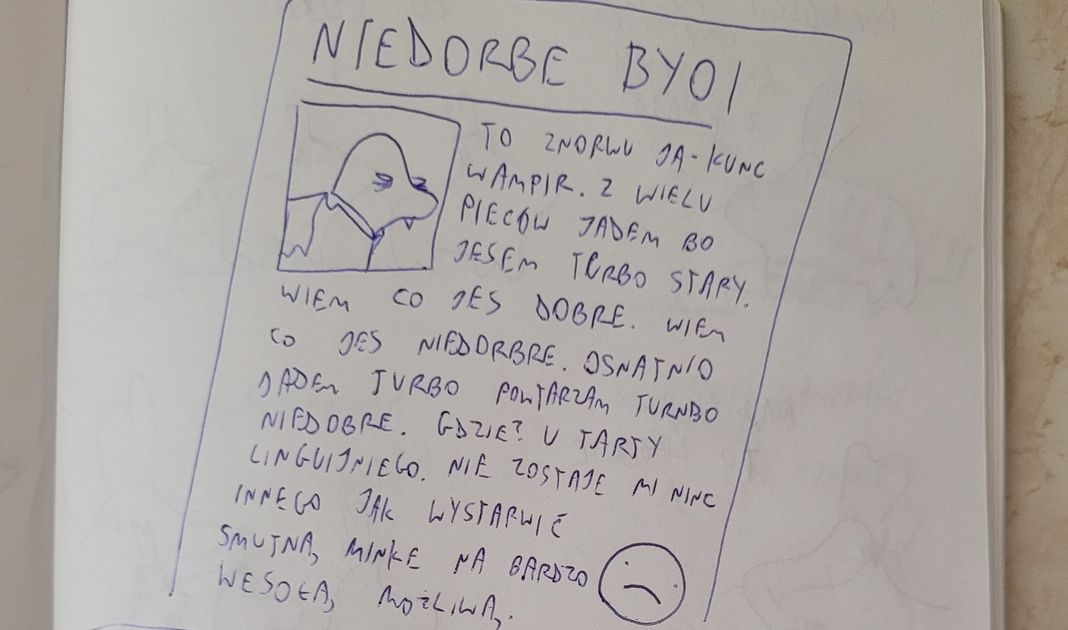 NIEDORBE BYOI
TO ZNORWU JA-KUNC
WAMPIR. Z WIELU
PIECÓW JADEM BO
JESEM TURBO STARY.
WIEM CO JES DOBRE. WIEM
CO JES NIEDORBRE. OSNATNIO
JADEM TURBO POWTARZAM TURNBO
NIEDOBRE. GDZIE? U TARTY
LINGUIJNIEGO. NIE ZOSTAJE MI NINC
INNEGO JAK WYSTARWIĆ
SMUTNĄ MINKE NA BARDZO
WESOŁĄ MOŻLIWĄ.